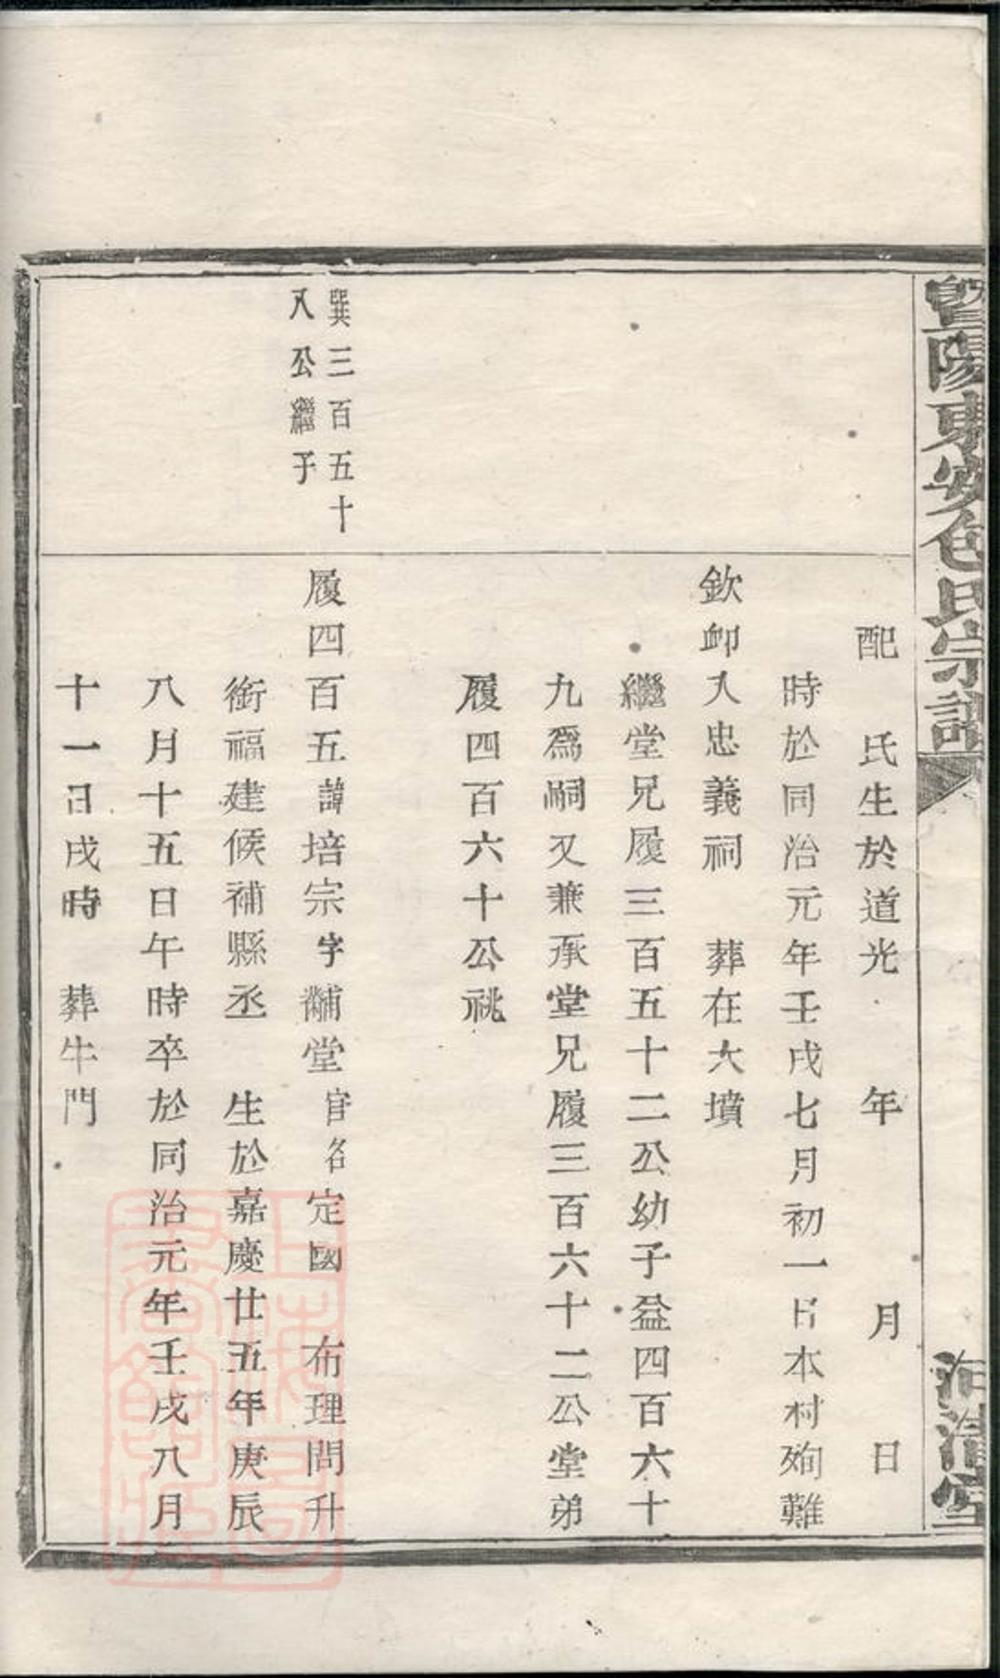 暨陽東安包氏宗譜
河清堂
配 氏生於道光 年 月 日
時於同治元年壬戌七月初一日本村殉難
欽卹入忠義祠 葬在大墳
繼堂兄履三百五十二公幼子益四百六十
九爲嗣又兼承堂兄履三百六十二公堂弟
履四百六十公祧
巽三百五十
八公繼子
履四百五諱培宗字黼堂官名定國 布理問升
銜福建候補縣丞 生於嘉慶廿五年庚辰
八月十五日午時卒於同治元年壬戌八月
十一日戌時 葬牛門
上海圖書館藏